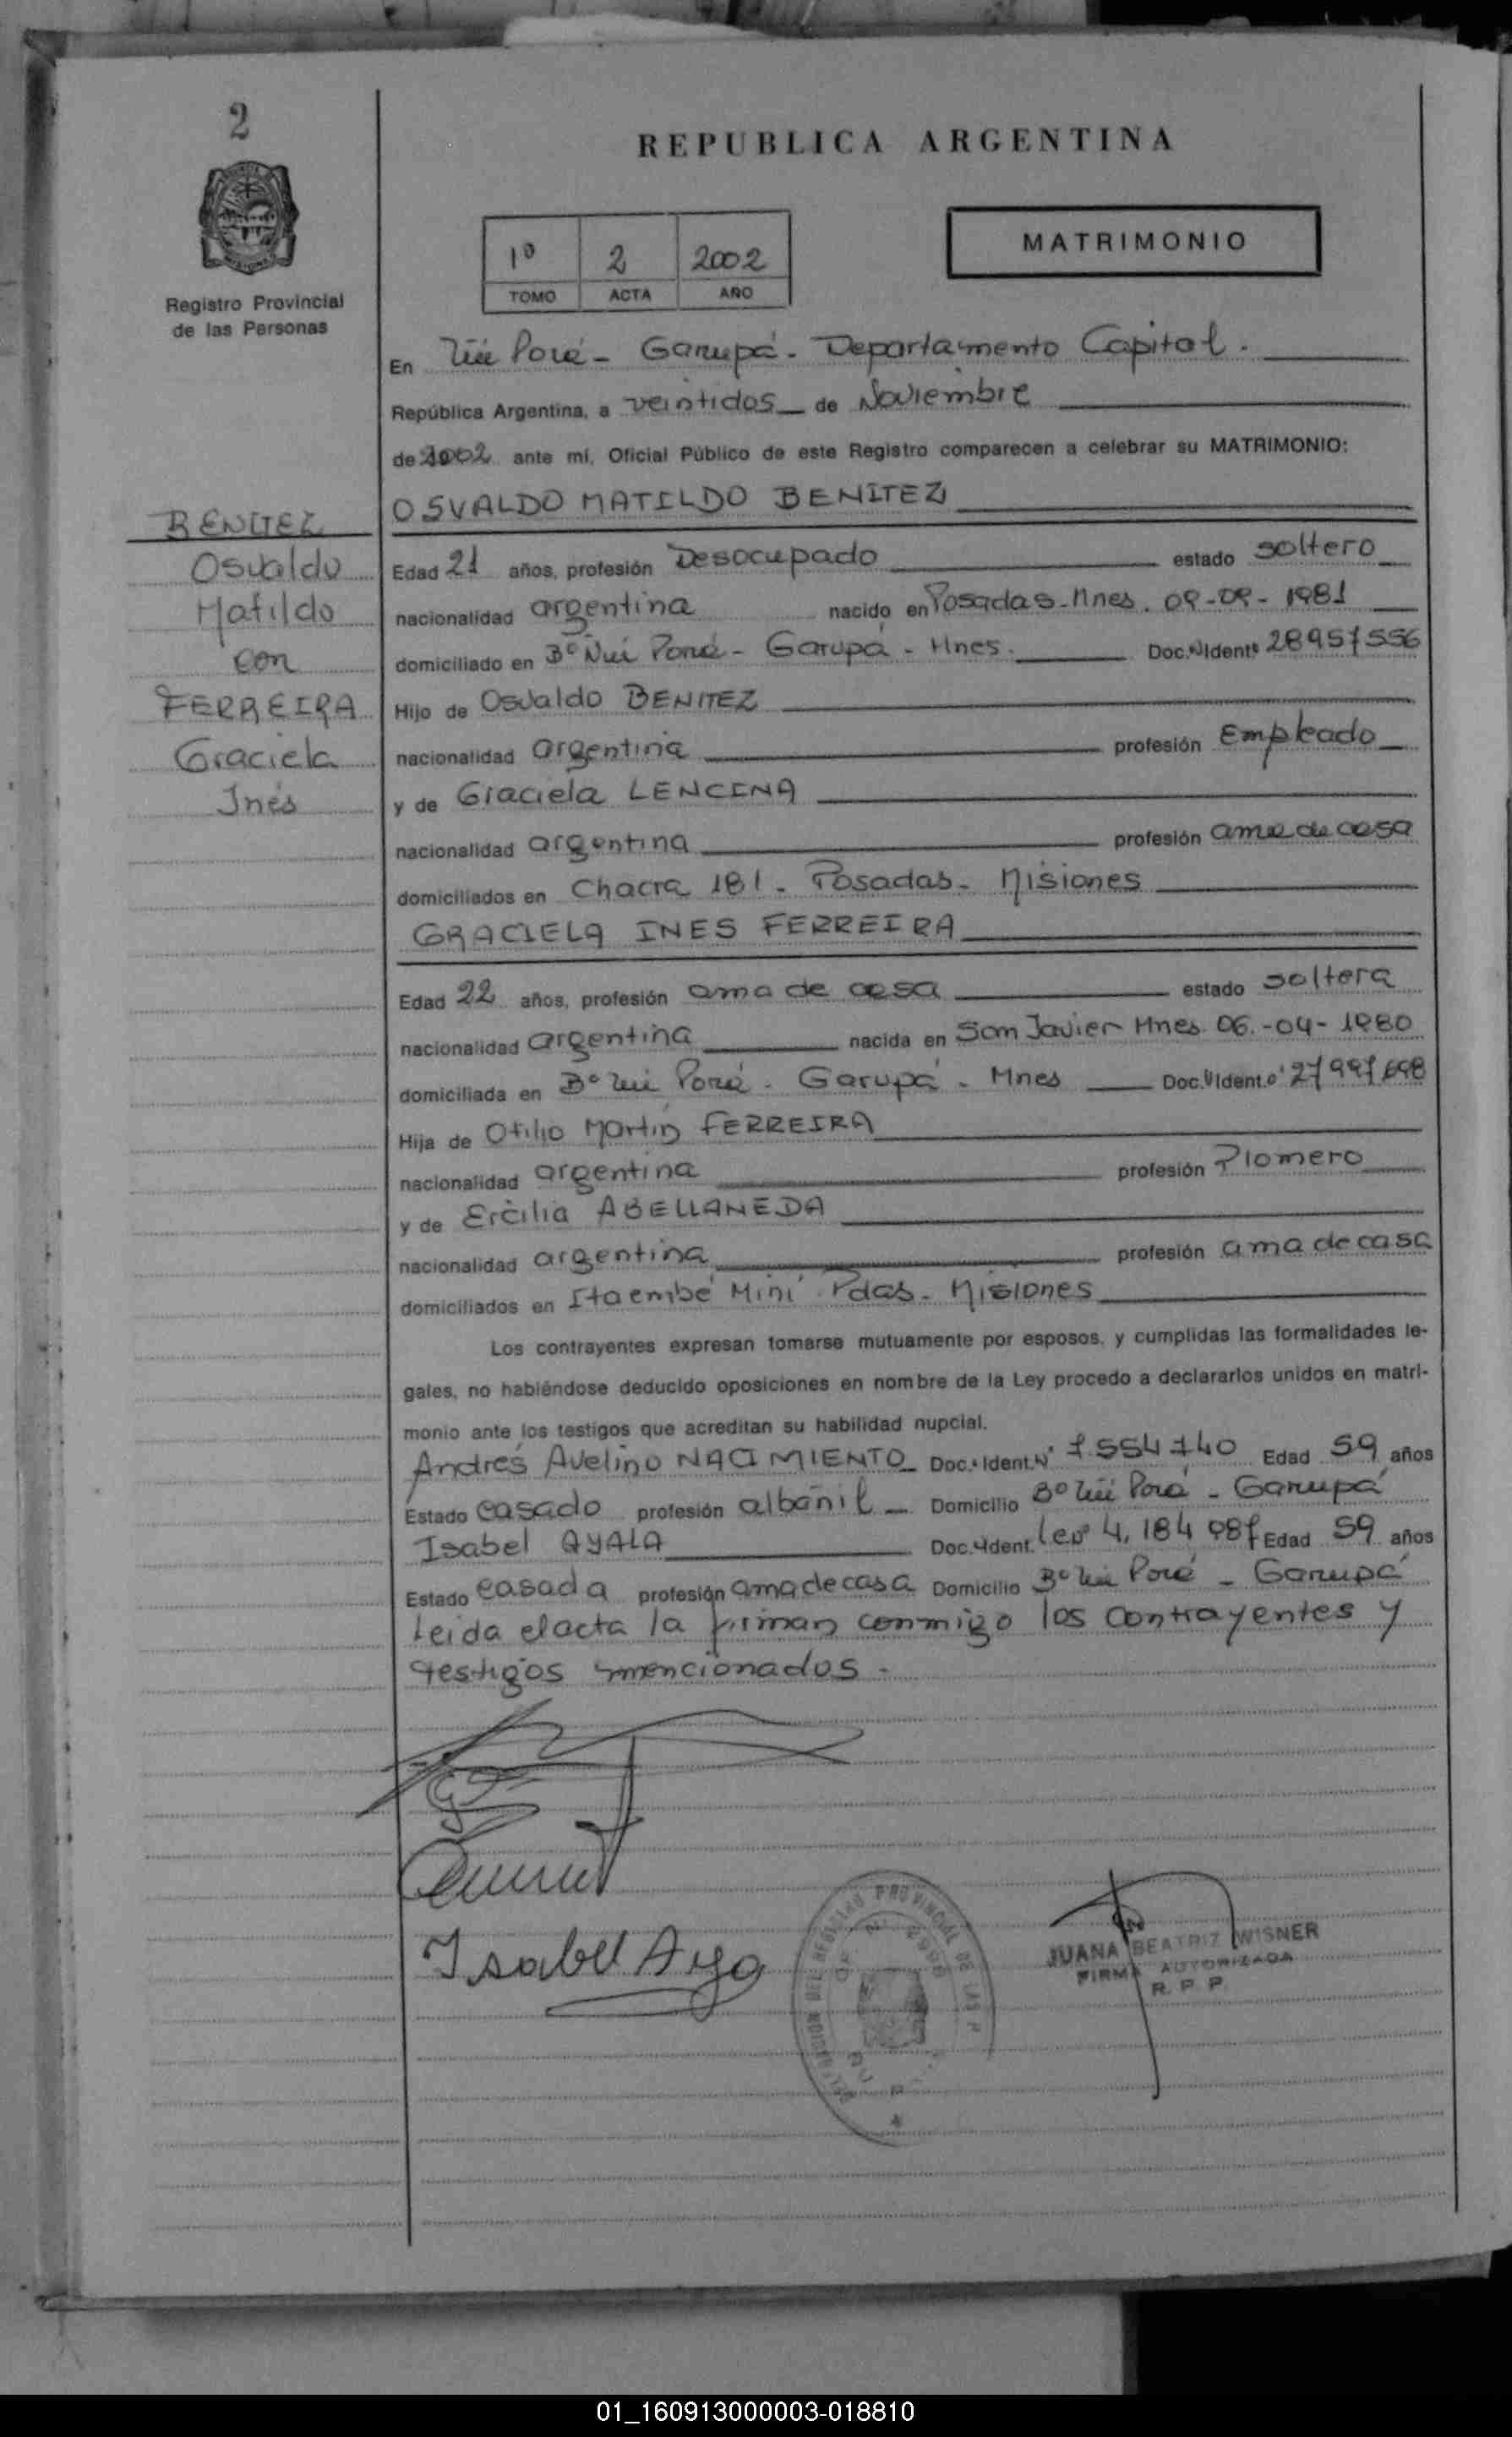 2
REPUBLICA ARGENTINA
Registro Provincial
de las Personas
1º 2 2002
TOMO ACTA AÑO
MATRIMONIO
En Ñu Porá - Garupá - Departamento Capital.
República Argentina, a veintidos de Noviembre
de 2002 ante mí, Oficial Público de este Registro comparecen a celebrar su MATRIMONIO:
BENITEZ
Osvaldo
Matildo
con
FERREIRA
Graciela
Inés
OSVALDO MATILDO BENITEZ
Edad 21 años, profesión Desocupado estado soltero
nacionalidad argentina nacido en Posadas-Mnes. 09-09-1981
domiciliado en Bº Ñu Porá - Garupá - Mnes. Doc. Ident. 28957556
Hijo de Osvaldo BENITEZ
nacionalidad argentina profesión Empleado
y de Graciela LENCINA
nacionalidad argentina profesión ama de casa
domiciliados en Chacra 181 - Posadas - Misiones
GRACIELA INES FERREIRA
Edad 22 años, profesión ama de casa estado soltera
nacionalidad argentina nacida en San Javier Mnes. 06-04-1980
domiciliada en Bº Ñu Porá - Garupá - Mnes Doc. Ident. 27997698
Hija de Otilio Martin FERREIRA
nacionalidad argentina profesión Plomero
y de Ercilia ABELLANEDA
nacionalidad argentina profesión ama de casa
domiciliados en Itaembé Miní Pdas - Misiones
Los contrayentes expresan tomarse mutuamente por esposos, y cumplidas las formalidades le-
gales, no habiéndose deducido oposiciones en nombre de la Ley procedo a declararlos unidos en matri-
monio ante los testigos que acreditan su habilidad nupcial.
Andrés Avelino NACIMIENTO Doc. Ident. Nº 7.554.740 Edad 59 años
Estado casado profesión albañil Domicilio Bº Ñu Porá - Garupá
Isabel AYALA Doc. Ident. 4.184.987 Edad 59 años
Estado casada profesión ama de casa Domicilio Bº Ñu Porá - Garupá
Leida el acta la firman conmigo los contrayentes y
testigos mencionados.
Isabel Aya
PROVINCIAL DE LAS P
JUANA BEATRIZ WISNER
FIRMA AUTORIZADA
R. P. P.
01_160913000003-018810